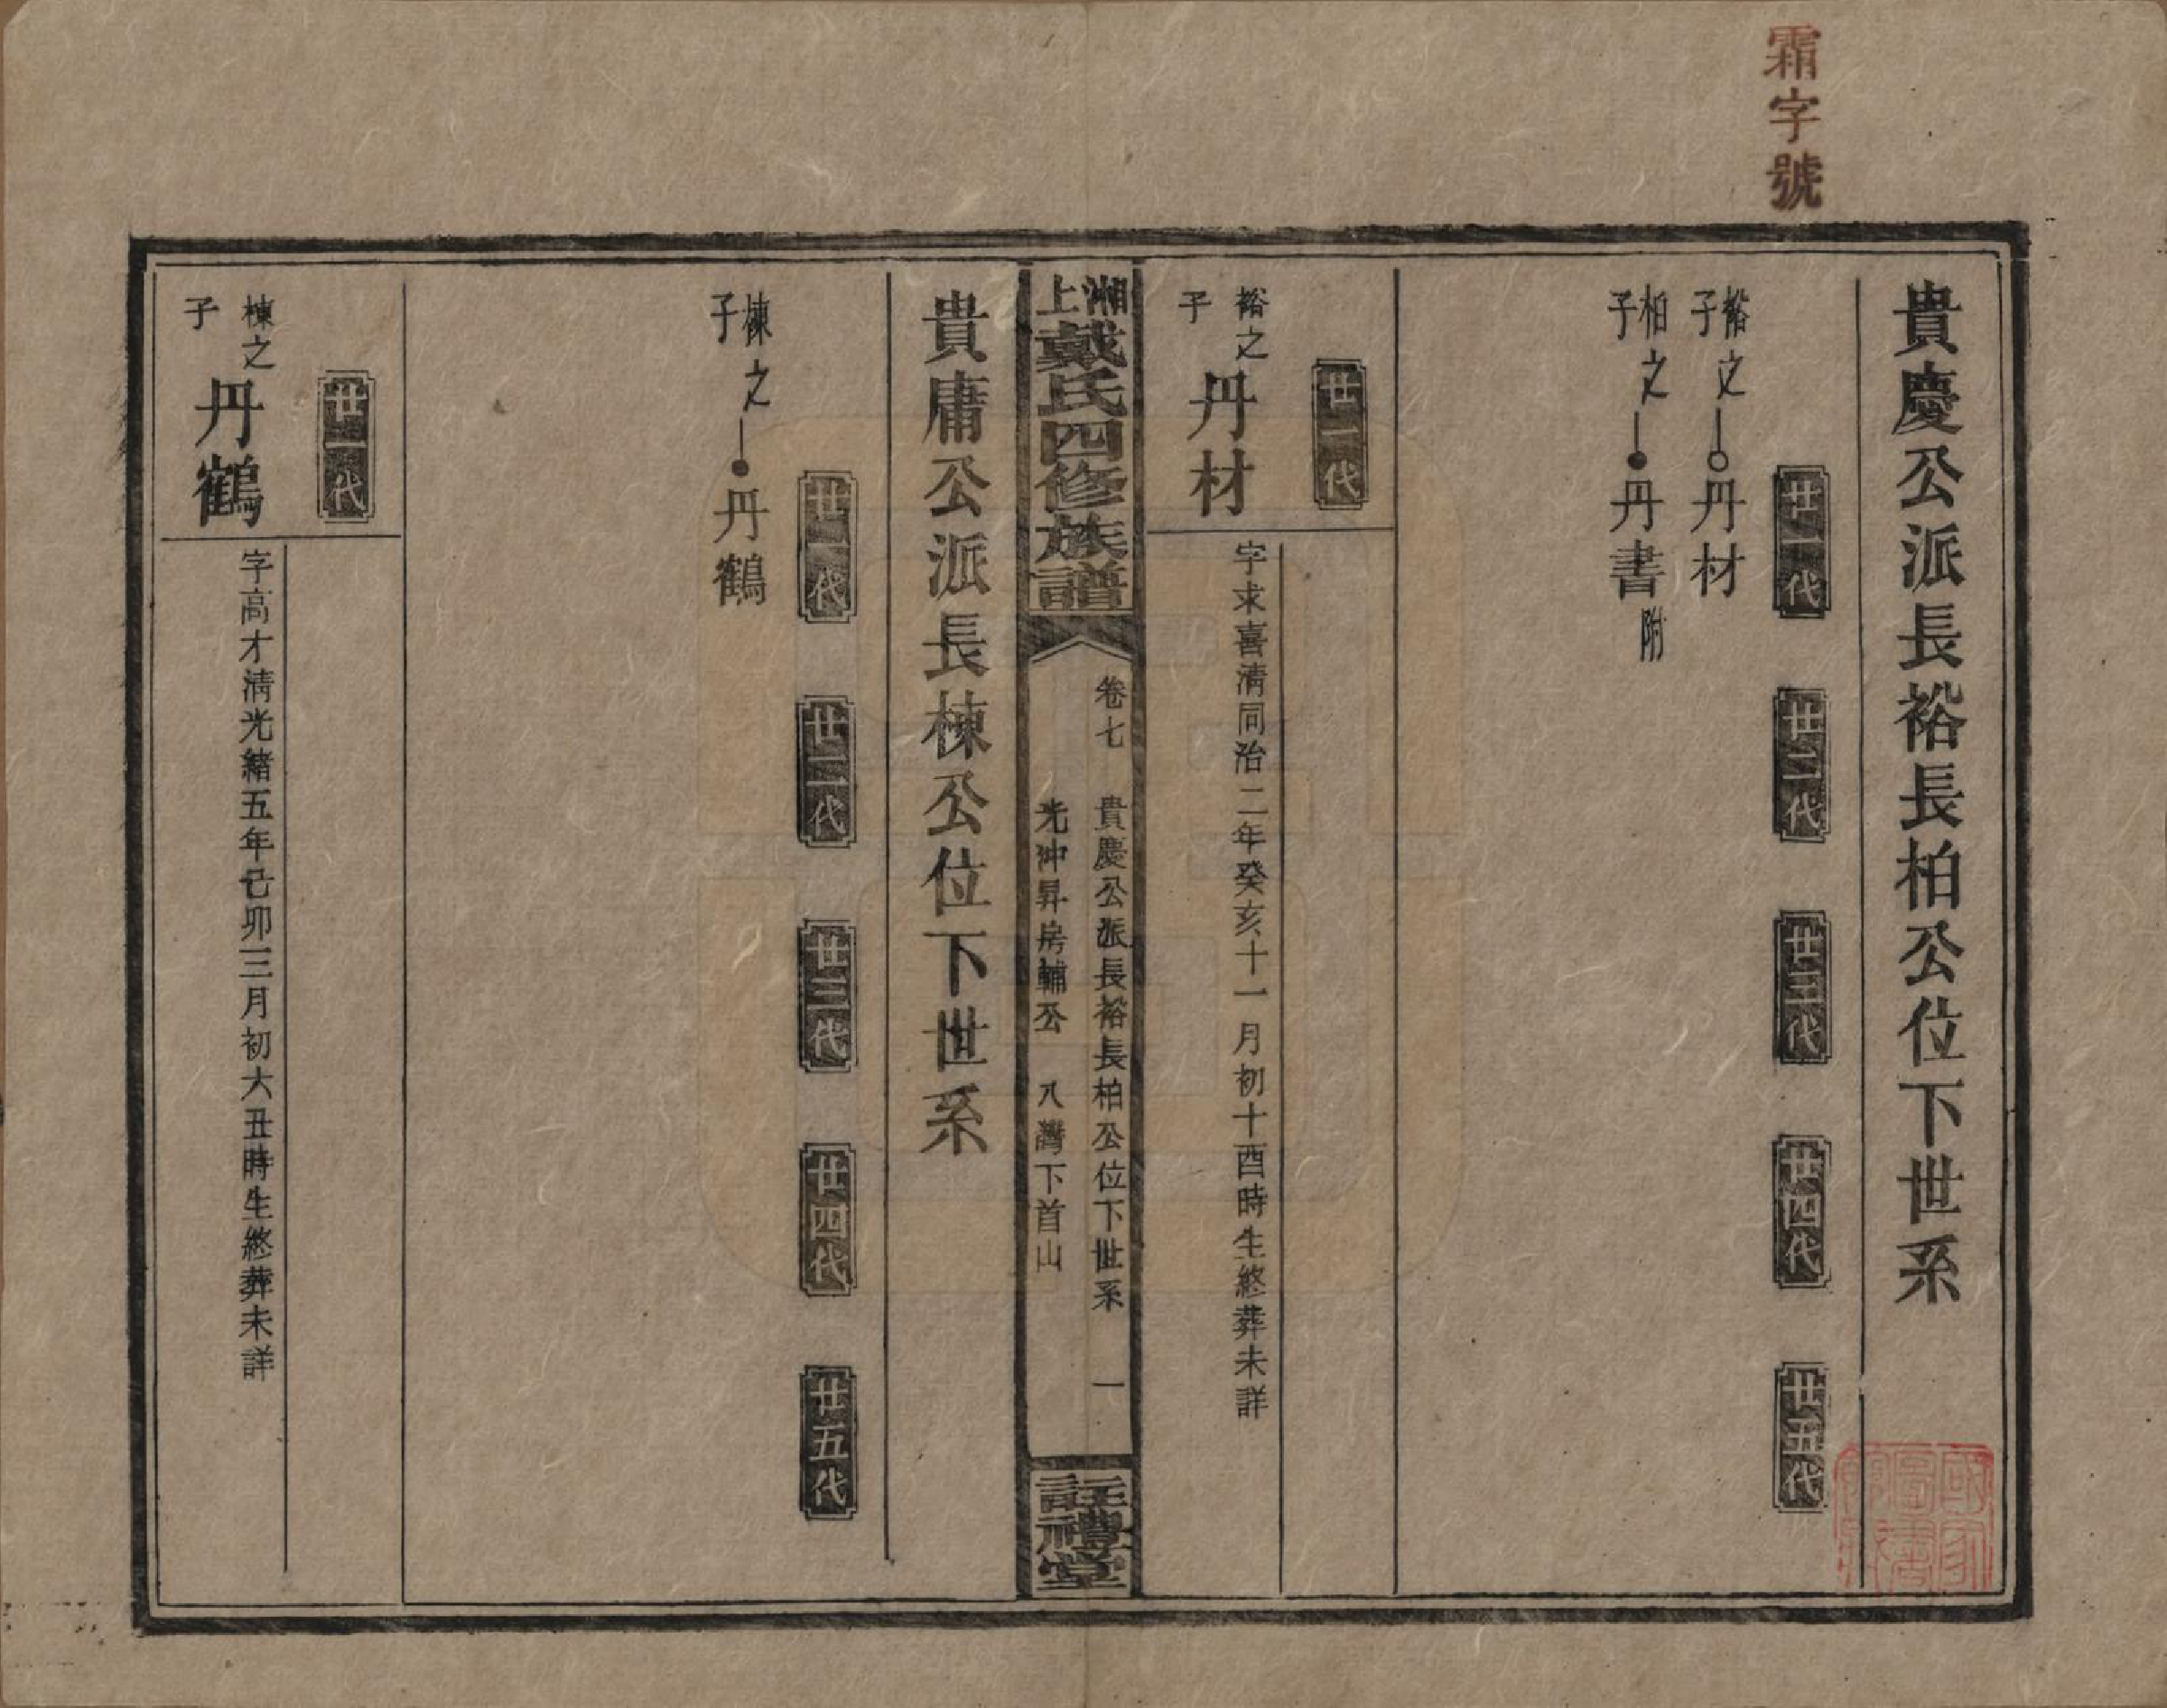 霜字號
貴慶公派長裕長柏公位下世系
廿一代
廿二代
廿三代
廿四代
廿五代
裕之子丹材
柏之子丹書附
廿一代
裕之子丹材
字求喜清同治二年癸亥十一月初十酉時生終葬未詳
湘上戴氏四修族譜
卷七 貴慶公派長裕長柏公位下世系 一
光沖昇房輔公 八灣下首山
註禮堂
貴庸公派長棟公位下世系
廿一代
廿二代
廿三代
廿四代
廿五代
棟之子丹鶴
廿一代
棟之子丹鶴
字高才清光緒五年己卯三月初六丑時生終葬未詳